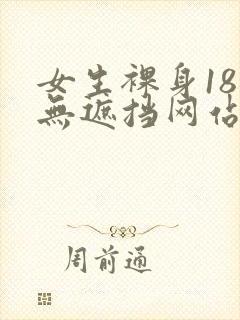 女生裸身18
無遮挡网佔
周前通